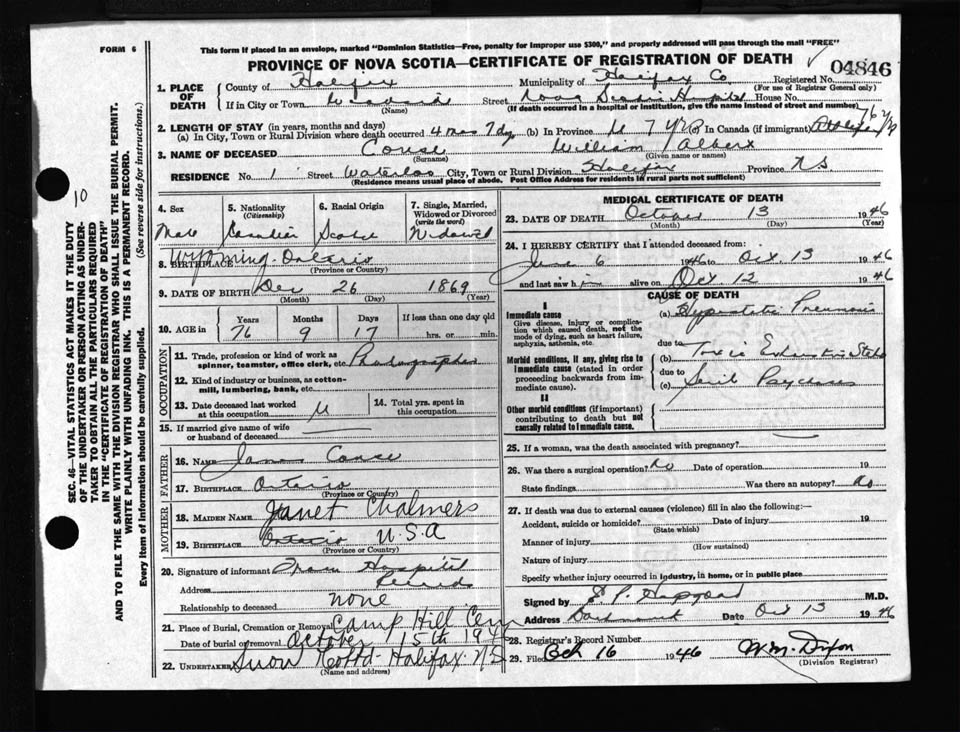 FORM 6
This form if placed in an envelope, marked "Dominion Statistics—Free, penalty for improper use $300," and properly addressed will pass through the mail "FREE"
PROVINCE OF NOVA SCOTIA—CERTIFICATE OF REGISTRATION OF DEATH
04846
1. PLACE OF DEATH
County of Halifax Municipality of Halifax Co Registered No.
(For use of Registrar General only)
If in City or Town Street Nova Scotia Hospital House No.
(Name) (If death occurred in a hospital or institution, give the name instead of street and number)
2. LENGTH OF STAY (in years, months and days)
(a) In City, Town or Rural Division where death occurred 4 mos 7 dys (b) In Province (c) In Canada (if immigrant)
3. NAME OF DECEASED Couse William Albert
(Surname) (Given name or names)
RESIDENCE No. 1 Street Waterloo City, Town or Rural Division Halifax Province NS
(Residence means usual place of abode. Post Office Address for residents in rural parts not sufficient)
4. Sex
Male
5. Nationality (Citizenship)
Canadian
6. Racial Origin
Scotch
7. Single, Married, Widowed or Divorced (write the word)
Widowed
8. BIRTHPLACE Wyoming-Ontario
(Province or Country)
9. DATE OF BIRTH Dec 26 1869
(Month) (Day) (Year)
10. AGE in
Years Months Days If less than one day old
76 9 17 hrs. or min.
OCCUPATION
11. Trade, profession or kind of work as spinner, teamster, office clerk, etc. Photographer
12. Kind of industry or business, as cotton-mill, lumbering, bank, etc.
13. Date deceased last worked at this occupation U
14. Total yrs. spent in this occupation
15. If married give name of wife or husband of deceased
FATHER
16. NAME James Couse
17. BIRTHPLACE Ontario
(Province or Country)
MOTHER
18. MAIDEN NAME Janet Chalmers
19. BIRTHPLACE Ontario U.S.A
(Province or Country)
20. Signature of informant From Hospital
Address Records
Relationship to deceased none
21. Place of Burial, Cremation or Removal Camp Hill Cem
Date of burial or removal October 15th 194
22. UNDERTAKER Snow & Co Ltd-Halifax-N/S
(Name and address)
MEDICAL CERTIFICATE OF DEATH
23. DATE OF DEATH October 13 1946
(Month) (Day) (Year)
24. I HEREBY CERTIFY that I attended deceased from:
June 6 1946 to Oct. 13 1946
and last saw him alive on Oct 12 1946
CAUSE OF DEATH
I
Immediate cause
Give disease, injury or complication which caused death, not the mode of dying, such as heart failure, asphyxia, asthenia, etc.
(a) Hypostatic Pneumonia
due to
Morbid conditions, if any, giving rise to immediate cause (stated in order proceeding backwards from immediate cause).
(b) Toxic Exhaustion State
due to
(c) Senile Psychosis
II
Other morbid conditions (if important) contributing to death but not causally related to immediate cause.
25. If a woman, was the death associated with pregnancy?
26. Was there a surgical operation? No Date of operation 19
State findings Was there an autopsy? No
27. If death was due to external causes (violence) fill in also the following:—
Accident, suicide or homicide? Date of injury 19
(State which)
Manner of injury
(How sustained)
Nature of injury
Specify whether injury occurred in industry, in home, or in public place
Signed by M.D.
Address Dartmouth Date Oct 13 1946
28. Registrar's Record Number
29. Filed Oct 16 1946 W.M. Dixon
(Division Registrar)
10
SEC. 46—VITAL STATISTICS ACT MAKES IT THE DUTY
OF THE UNDERTAKER OR PERSON ACTING AS UNDER-
TAKER TO OBTAIN ALL THE PARTICULARS REQUIRED
IN THE "CERTIFICATE OF REGISTRATION OF DEATH"
AND TO FILE THE SAME WITH THE DIVISION REGISTRAR WHO SHALL ISSUE THE BURIAL PERMIT.
WRITE PLAINLY WITH UNFADING INK. THIS IS A PERMANENT RECORD.
Every item of information should be carefully supplied.
(See reverse side for instructions.)